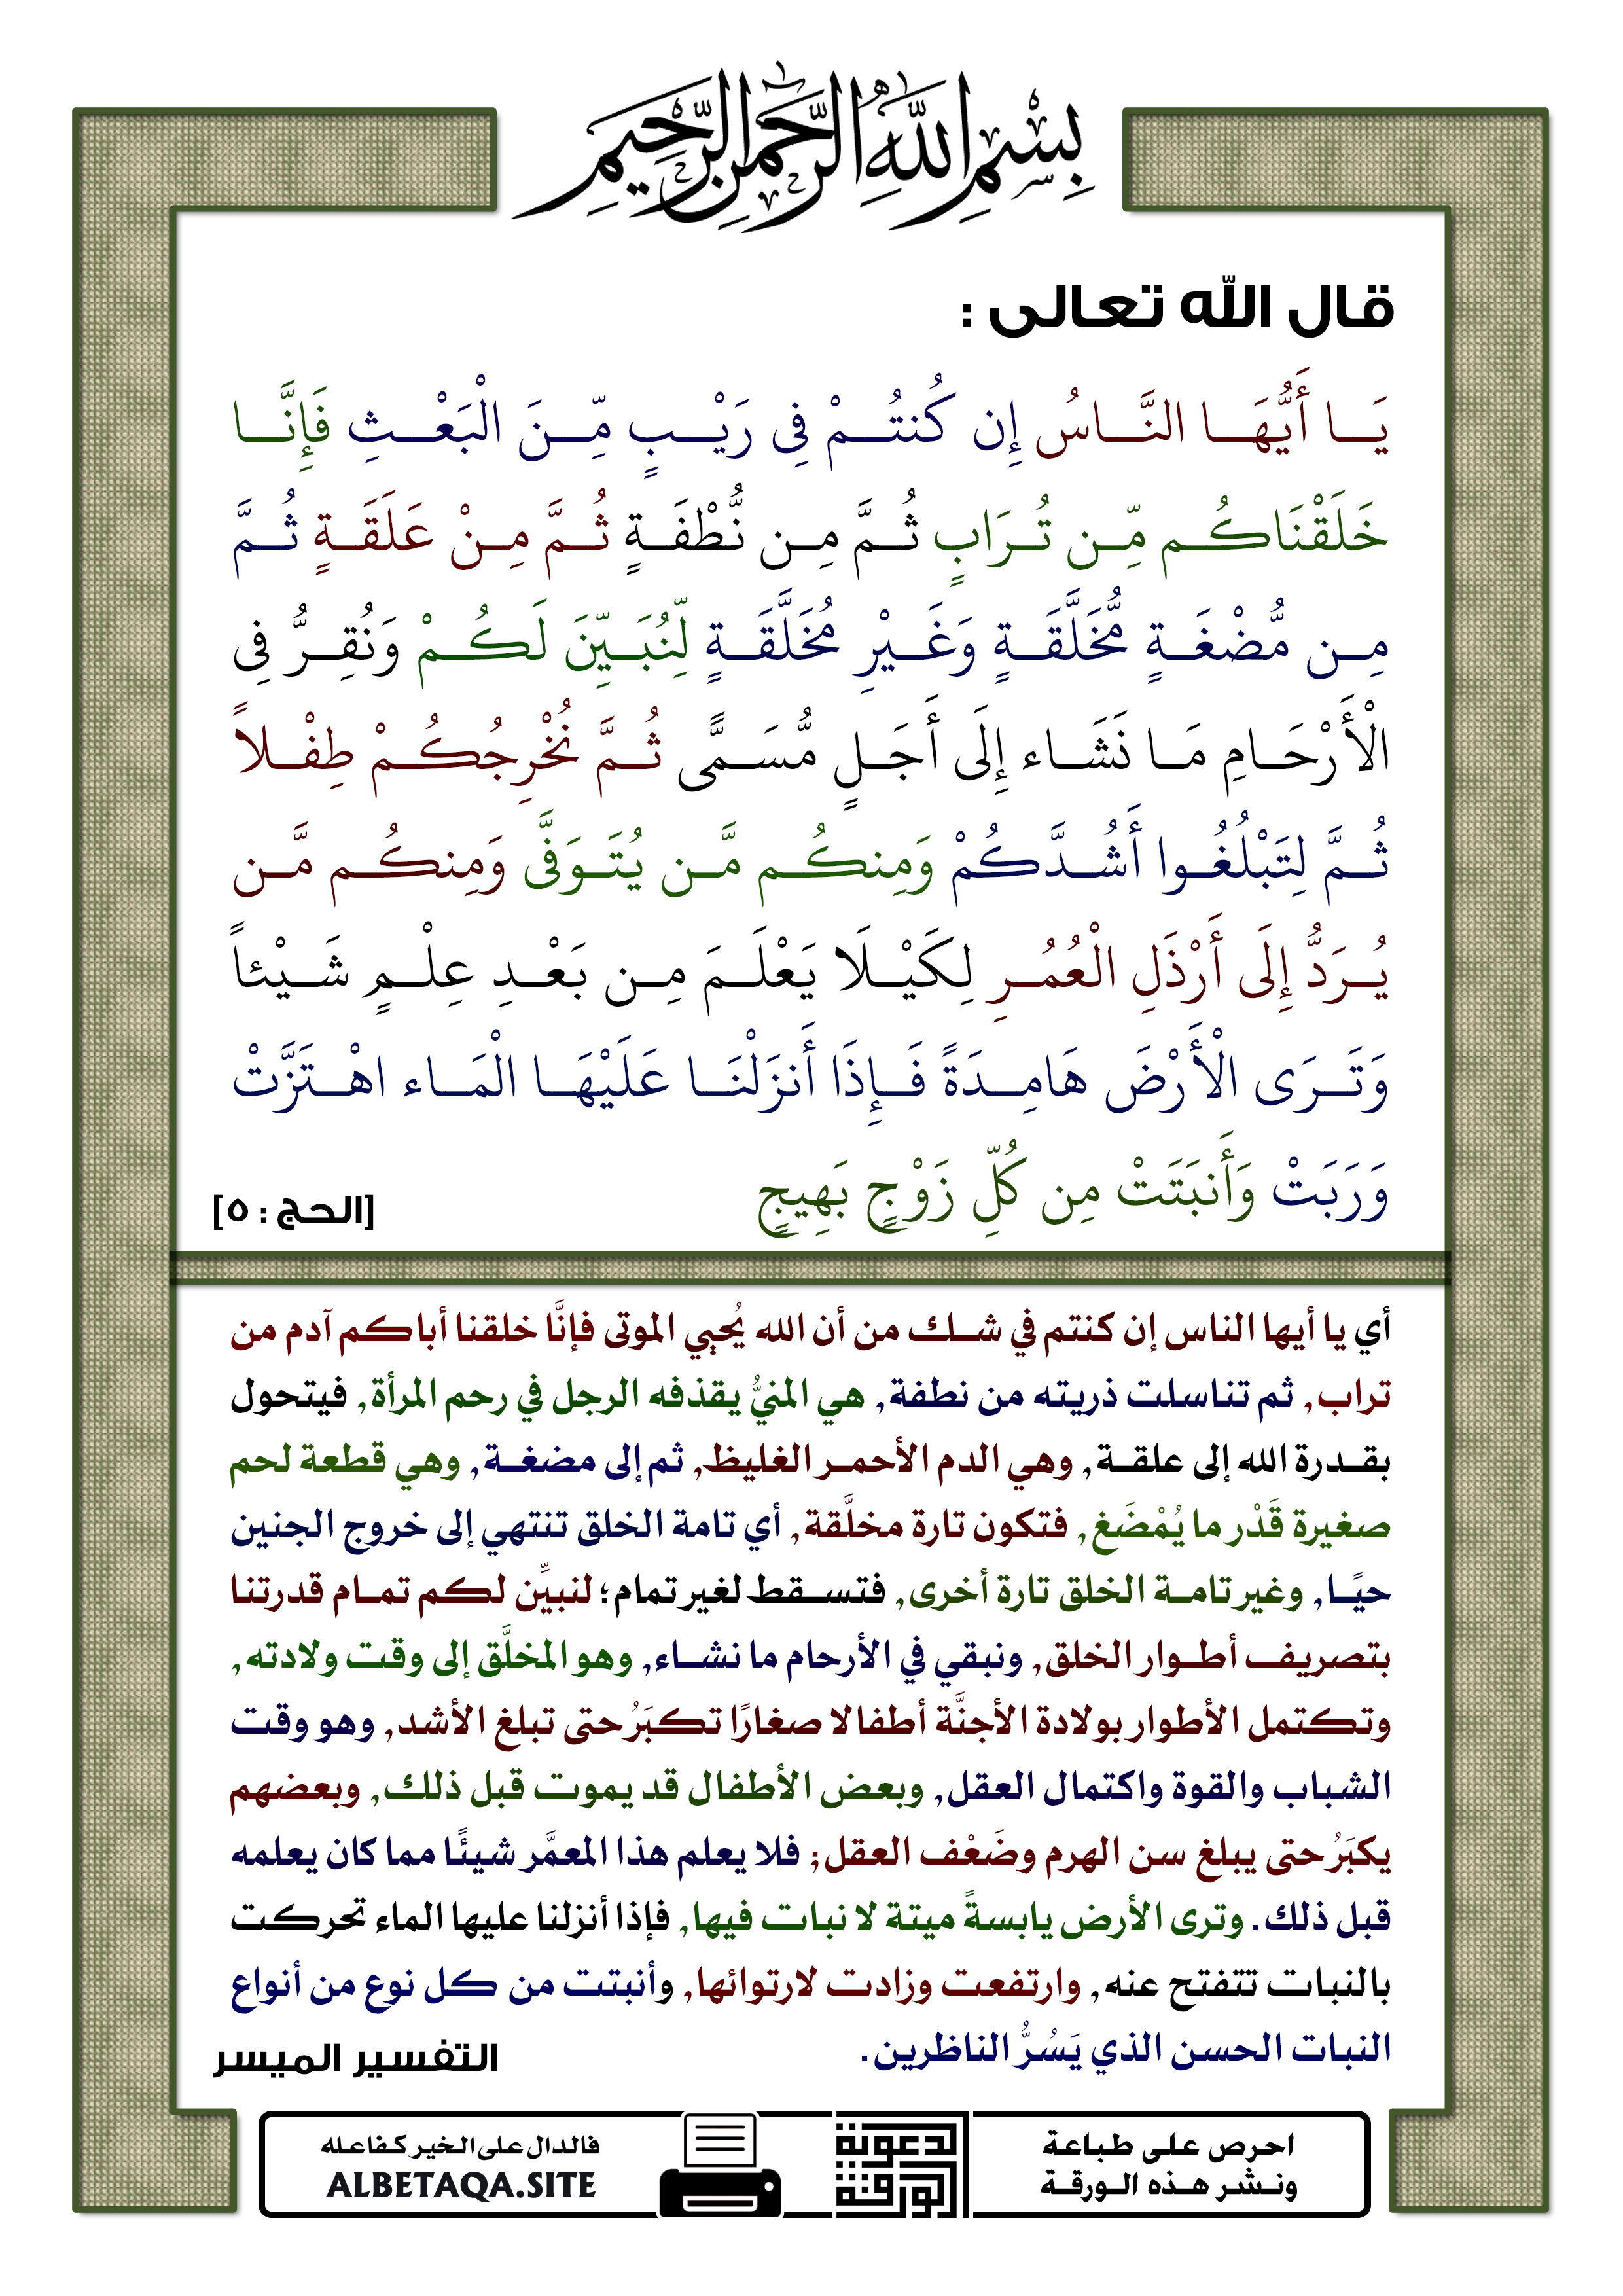 بِسْمِ اللَّهِ الرَّحْمَٰنِ الرَّحِيمِ
قال الله تعالى :
يَا أَيُّهَا النَّاسُ إِن كُنتُمْ فِي رَيْبٍ مِّنَ الْبَعْثِ فَإِنَّا
خَلَقْنَاكُم مِّن تُرَابٍ ثُمَّ مِن نُّطْفَةٍ ثُمَّ مِنْ عَلَقَةٍ ثُمَّ
مِن مُّضْغَةٍ مُّخَلَّقَةٍ وَغَيْرِ مُخَلَّقَةٍ لِّنُبَيِّنَ لَكُمْ وَنُقِرُّ فِي
الْأَرْحَامِ مَا نَشَاء إِلَى أَجَلٍ مُّسَمًّى ثُمَّ نُخْرِجُكُمْ طِفْلاً
ثُمَّ لِتَبْلُغُوا أَشُدَّكُمْ وَمِنكُم مَّن يُتَوَفَّى وَمِنكُم مَّن
يُرَدُّ إِلَى أَرْذَلِ الْعُمُرِ لِكَيْلَا يَعْلَمَ مِن بَعْدِ عِلْمٍ شَيْئاً
وَتَرَى الْأَرْضَ هَامِدَةً فَإِذَا أَنزَلْنَا عَلَيْهَا الْمَاء اهْتَزَّتْ
وَرَبَتْ وَأَنبَتَتْ مِن كُلِّ زَوْجٍ بَهِيجٍ [الحج : ٥]
أي يا أيها الناس إن كنتم في شك من أن الله يُحيِي الموتى فإنَّا خلقنا أباكم آدم من
تراب, ثم تناسلت ذريته من نطفة, هي المنيُّ يقذفه الرجل في رحم المرأة, فيتحول
بقدرة الله إلى علقة, وهي الدم الأحمر الغليظ, ثم إلى مضغة, وهي قطعة لحم
صغيرة قَدْر ما يُمْضَغ, فتكون تارة مخلَّقة, أي تامة الخلق تنتهي إلى خروج الجنين
حيًا, وغير تامة الخلق تارة أخرى, فتسقط لغير تمام؛ لنبيِّن لكم تمام قدرتنا
بتصريف أطوار الخلق, ونبقي في الأرحام ما نشاء, وهو المخلَّق إلى وقت ولادته,
وتكتمل الأطوار بولادة الأجنَّة أطفالا صغارًا تكبَرُ حتى تبلغ الأشد, وهو وقت
الشباب والقوة واكتمال العقل, وبعض الأطفال قد يموت قبل ذلك, وبعضهم
يكبَرُ حتى يبلغ سن الهرم وضَعْف العقل; فلا يعلم هذا المعمَّر شيئًا مما كان يعلمه
قبل ذلك. وترى الأرض يابسةً ميتة لا نبات فيها, فإذا أنزلنا عليها الماء تحركت
بالنبات تتفتح عنه, وارتفعت وزادت لارتوائها, وأنبتت من كل نوع من أنواع
النبات الحسن الذي يَسُرُّ الناظرين. التفسير الميسر
احرص على طباعة
ونشر هذه الورقة
الورقة
الدعوية
فالدال على الخير كفاعله
ALBETAQA.SITE